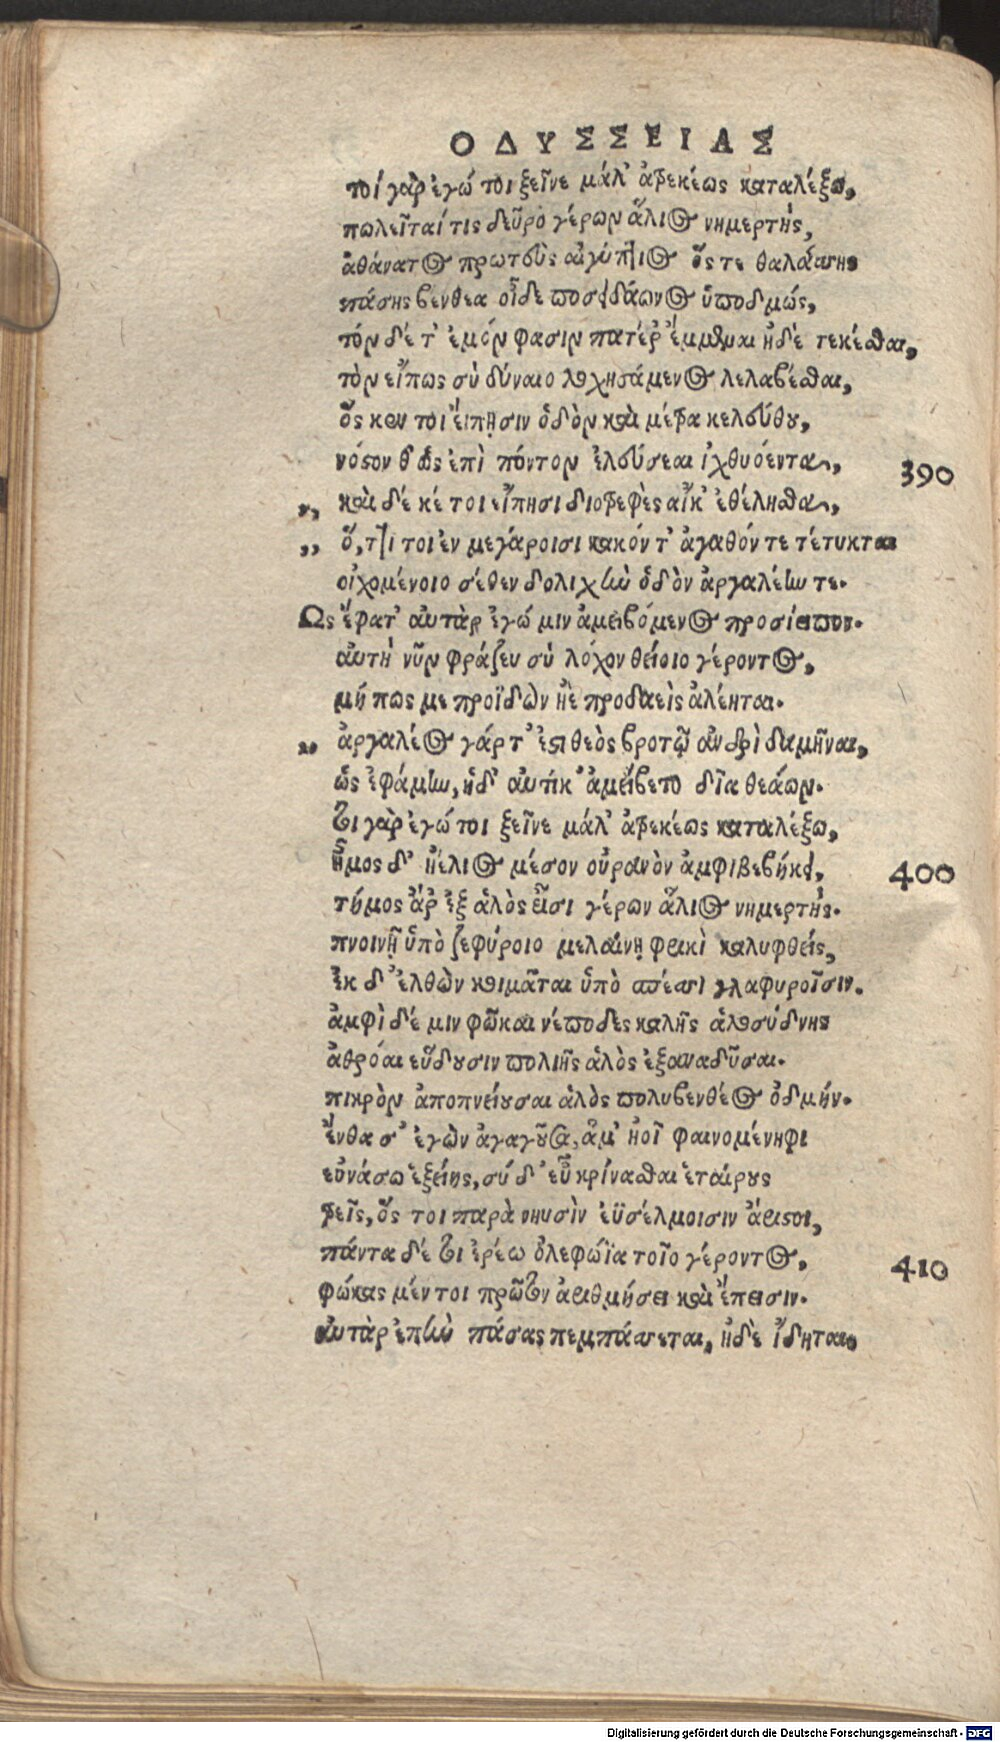 ΟΔΥΣΣΕΙΑΣ
τοὶ γὰρ ἐγώ τοι ξεῖνε μάλ' ἀτρεκέως καταλέξω,
πωλεῖταί τις δεῦρο γέρων ἅλιος νημερτὴς,
ἀθάνατος πρωτεὺς αἰγύπτιος ὅς τε θαλάσσης
πάσης βένθεα οἶδε ποσειδάωνος ὑποδμώς,
τόν δέ τ' ἐμόν φασιν πατέρ' ἔμμεναι ἠδὲ τεκέσθαι,
τὸν εἴπως σὺ δύναιο λοχησάμενος λελαβέσθαι,
ὅς κεν τοι εἴπῃσιν ὁδὸν καὶ μέτρα κελεύθου,
νόστον θ' ὡς ἐπὶ πόντον ἐλεύσεαι ἰχθυόεντα,
390
,, καὶ δέ κέ τοι εἴπησι διοτρεφὲς αἴκ' ἐθέλησθα,
,, ὅ,ττι τοι ἐν μεγάροισι κακόν τ' ἀγαθόν τε τέτυκται
οἰχομένοιο σέθεν δολιχὴν ὁδὸν ἀργαλέην τε.
Ὣς ἔφατ' αὐτὰρ ἐγώ μιν ἀμειβόμενος προσέειπον.
αὐτὴ νῦν φράζευ σὺ λόχον θείοιο γέροντος,
μή πως με προϊδὼν ἠὲ προδαεὶς ἀλέηται.
,, ἀργαλέος γάρ τ' ἐστὶ θεὸς βροτῷ ἀνδρὶ δαμῆναι,
ὣς ἐφάμην, ἡδ' αὐτίκ' ἀμείβετο δῖα θεάων.
τοὶ γὰρ ἐγώ τοι ξεῖνε μάλ' ἀτρεκέως καταλέξω,
ἦμος δ' ἠέλιος μέσον οὐρανὸν ἀμφιβεβήκει,
400
τήμος ἄρ' ἐξ ἁλὸς εἶσι γέρων ἅλιος νημερτὴς.
πνοιῇ ὑπὸ ζεφύροιο μελαίνῃ φρικὶ καλυφθείς,
ἐκ δ' ἐλθὼν κοιμᾶται ὑπὸ σπέσσι γλαφυροῖσιν.
ἀμφὶ δέ μιν φῶκαι νέποδες καλῆς ἁλοσύδνης
ἀθρόαι εὕδουσιν πολιῆς ἁλὸς ἐξαναδῦσαι.
πικρὸν ἀποπνείουσαι ἁλὸς πολυβενθέος ὀδμήν.
ἔνθα σ' ἐγὼν ἀγαγοῦσα, ἅμ' ἠοῖ φαινομένηφι
εὐνάσω ἑξείης, σύ δ' εὖ κρίνασθαι ἑταίρους
τρεῖς, ὅς τοι παρὰ νηυσὶν ἐϋσέλμοισιν ἄριστοι,
πάντα δέ τοι ἐρέω ὀλοφώϊα τοῖο γέροντος,
410
φώκας μέν τοι πρῶτον ἀριθμήσει καὶ ἔπεισιν.
αὐτὰρ ἐπὴν πάσας πεμπάσσεται, ἠδὲ ἴδηται,
Digitalisierung gefördert durch die Deutsche Forschungsgemeinschaft - DFG